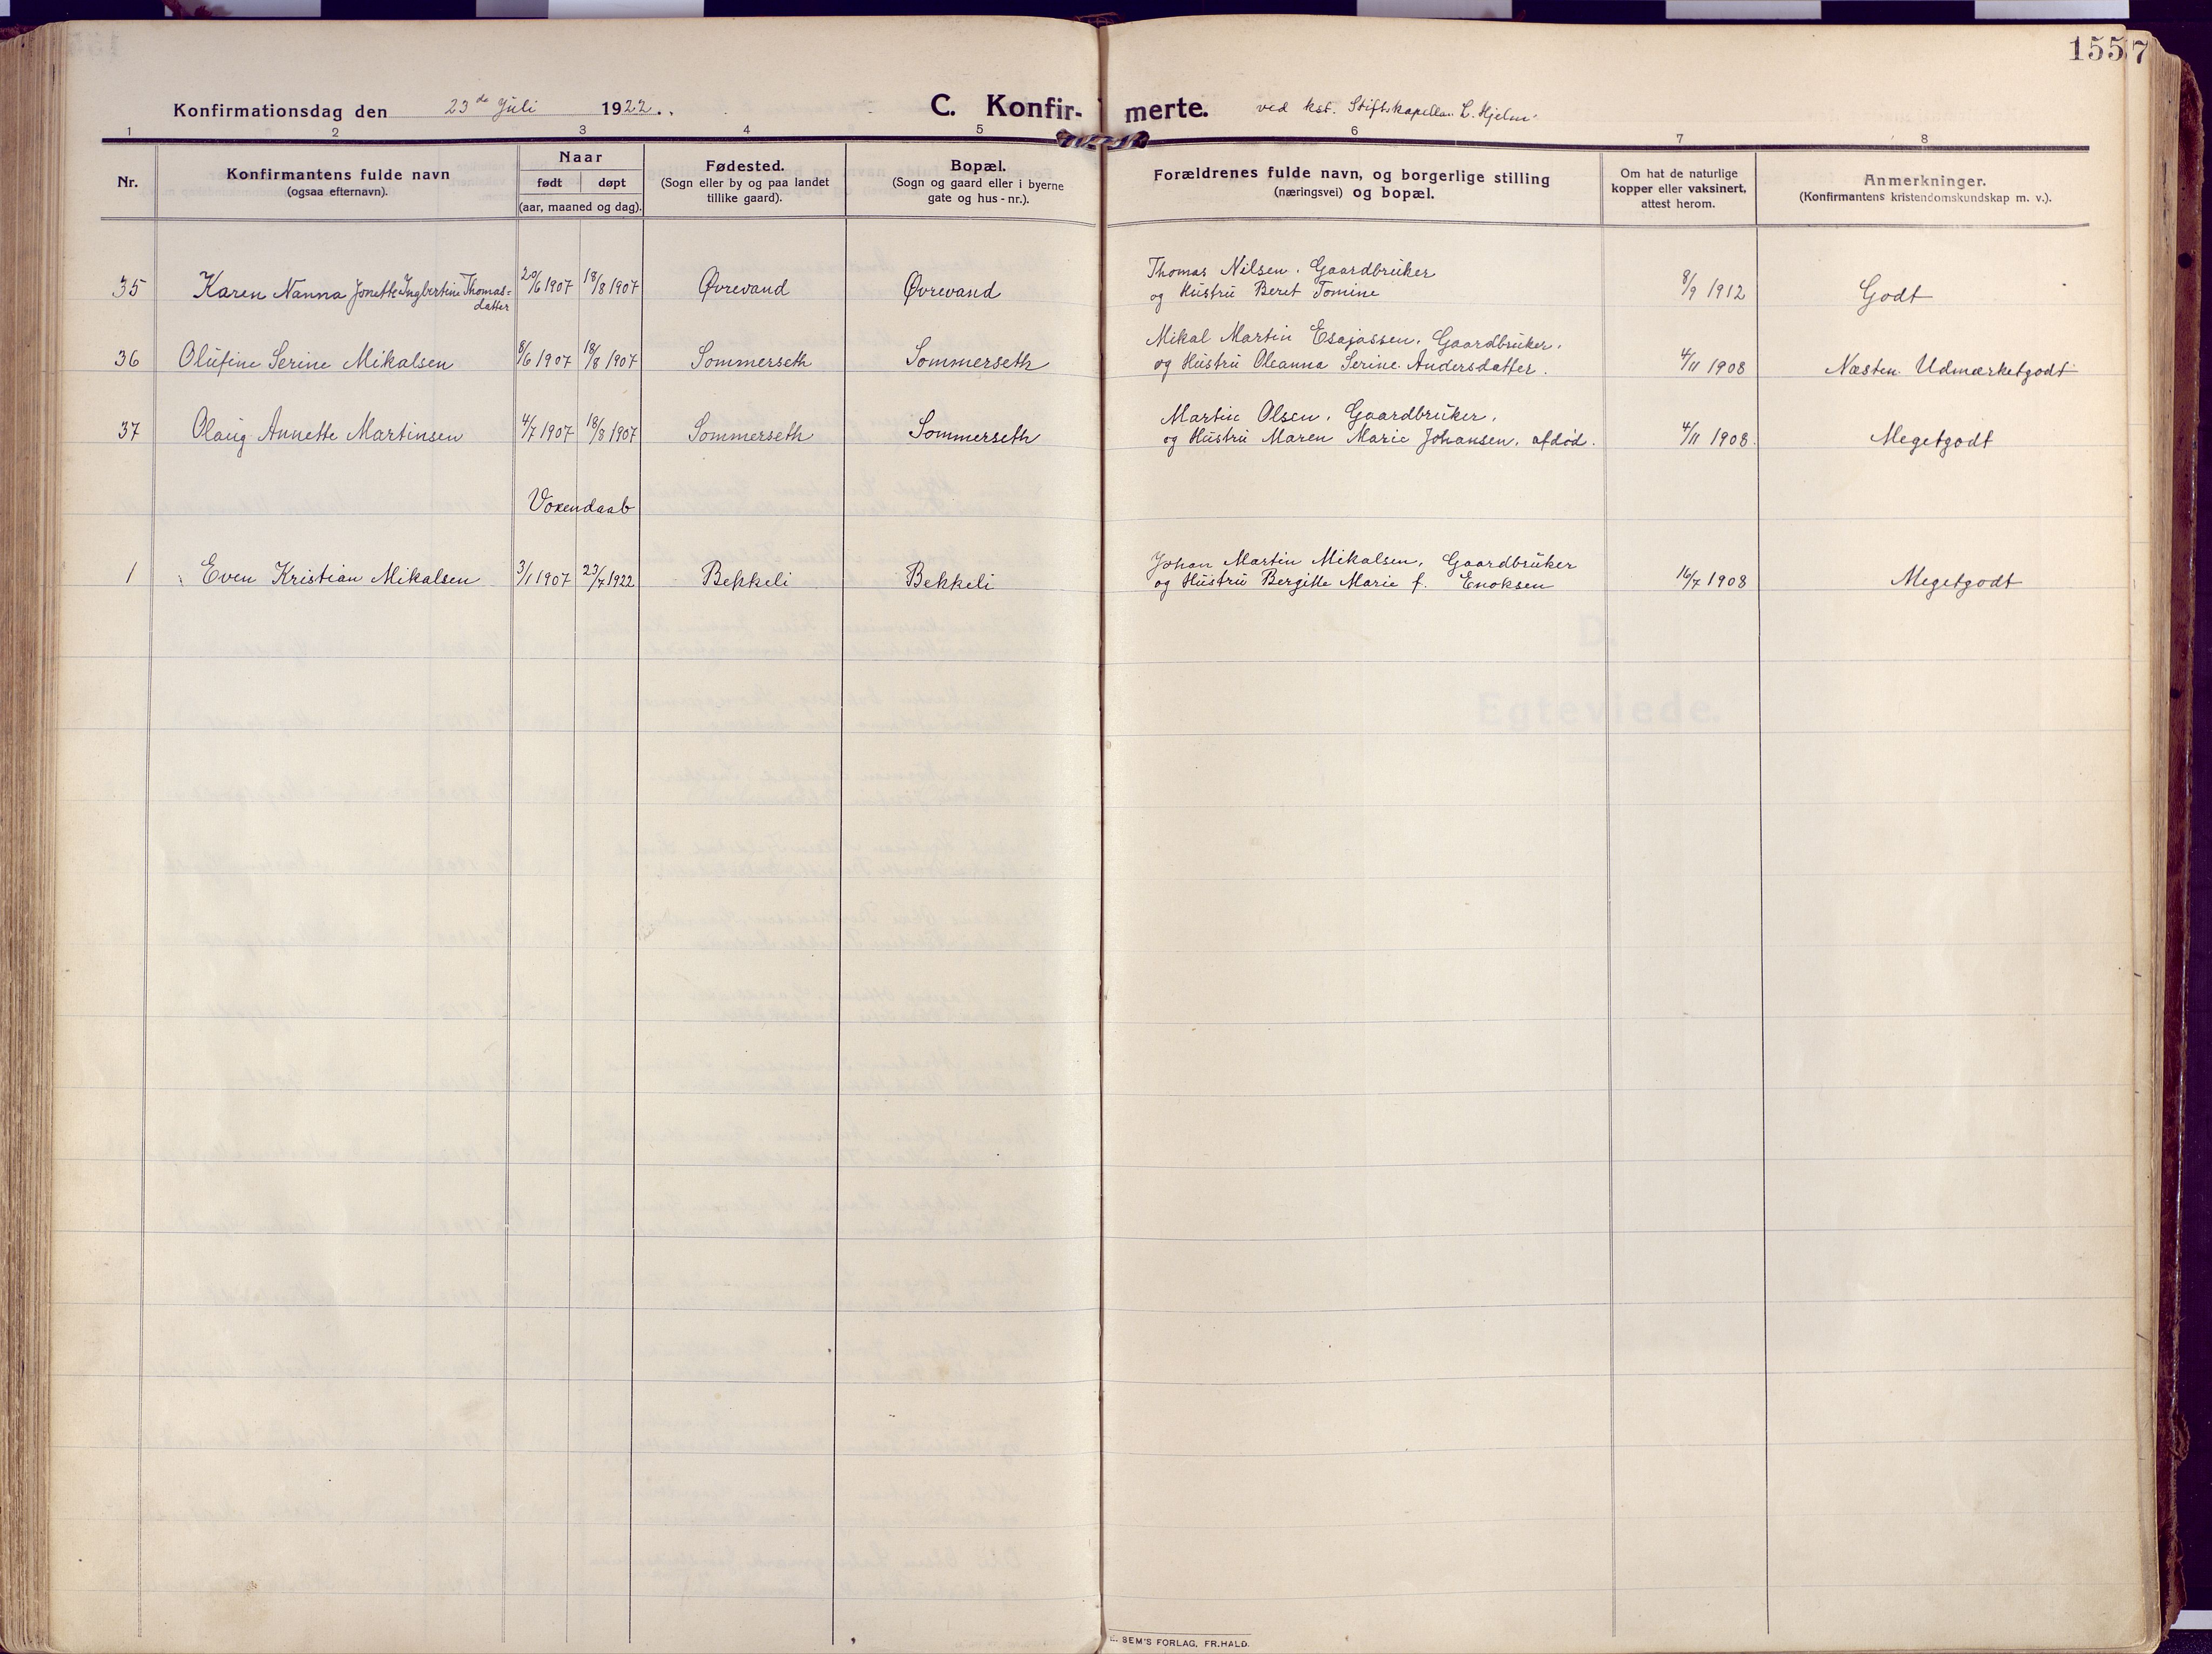 155 7
Konfirmationsdag den 23de Juli 1922. C. Konfir- merte. ved kst. Stiftskapellan L. Hjelm.
1 2 3 4 5 6 7 8
Nr.
Konfirmantens fulde navn
(ogsaa efternavn).
Naar
født døpt
(aar, maaned og dag).
Fødested.
(Sogn eller by og paa landet
tillike gaard).
Bopæl.
(Sogn og gaard eller i byerne
gate og hus-nr.).
Forældrenes fulde navn, og borgerlige stilling
(næringsvei) og bopæl.
Om hat de naturlige
kopper eller vaksinert,
attest herom.
Anmerkninger.
(Konfirmantens kristendomskundskap m. v.).
Thomas Nilsen, Gaardbruker
35 Karen Nanna Jonette Ingbertine Thomas= 20/6 1907 18/8 1907 Øvrevand Øvrevand og Hustru Beret Tomine 8/9 1912 Godt
datter
Mikal Martin Esajassen, Gaardbruker,
36 Olufine Serine Mikalsen 8/6 1907 18/8 1907 Sommerseth Sommerseth og Hustru Oleanna Serine Andersdatter. 4/11 1908 Næsten Udmærketgodt
Martin Olsen, Gaardbruker,
37 Olaug Annette Martinsen 4/7 1907 18/8 1907 Sommerseth Sommerseth og Hustru Maren Marie Johansen, afdød. 4/11 1908. Megetgodt
Voxendaab
Johan Martin Mikalsen, Gaardbruker
1 Even Kristian Mikalsen 3/1 1907 23/7 1922 Bekkeli Bekkeli og Hustru Bergitte Marie f. Enoksen 16/7 1908 Megetgodt
D.
Egteviede.
SEM'S FORLAG, FR.HALD.